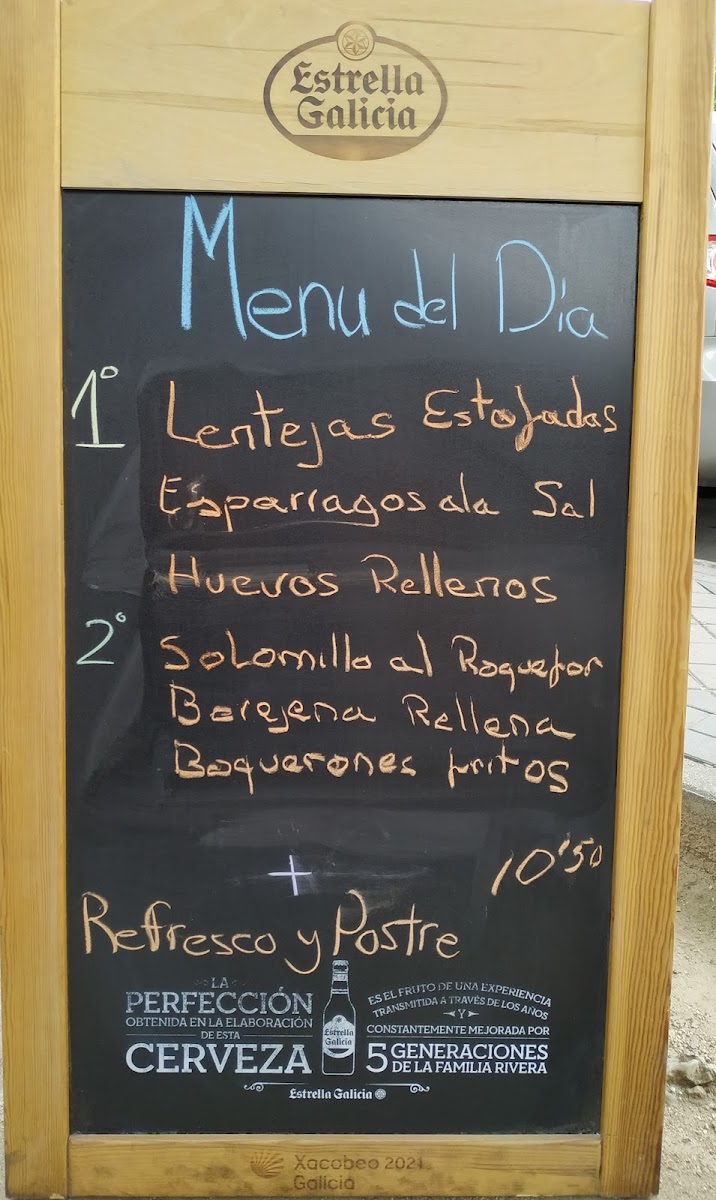 Estrella
Galicia
Menu del Día
1º Lentejas Estofadas
Esparragos ala Sal
Huevos Rellenos
2º Solomillo al Roquefor
Berejena Rellena
Boquerones fritos
+ 10'50
Refresco y Postre
LA
PERFECCIÓN
OBTENIDA EN LA ELABORACIÓN
DE ESTA
CERVEZA
Estrella
Galicia
ES EL FRUTO DE UNA EXPERIENCIA
TRANSMITIDA A TRAVÉS DE LOS AÑOS
Y
CONSTANTEMENTE MEJORADA POR
5 GENERACIONES
DE LA FAMILIA RIVERA
Estrella Galicia
Xacobeo 2021
Galicia